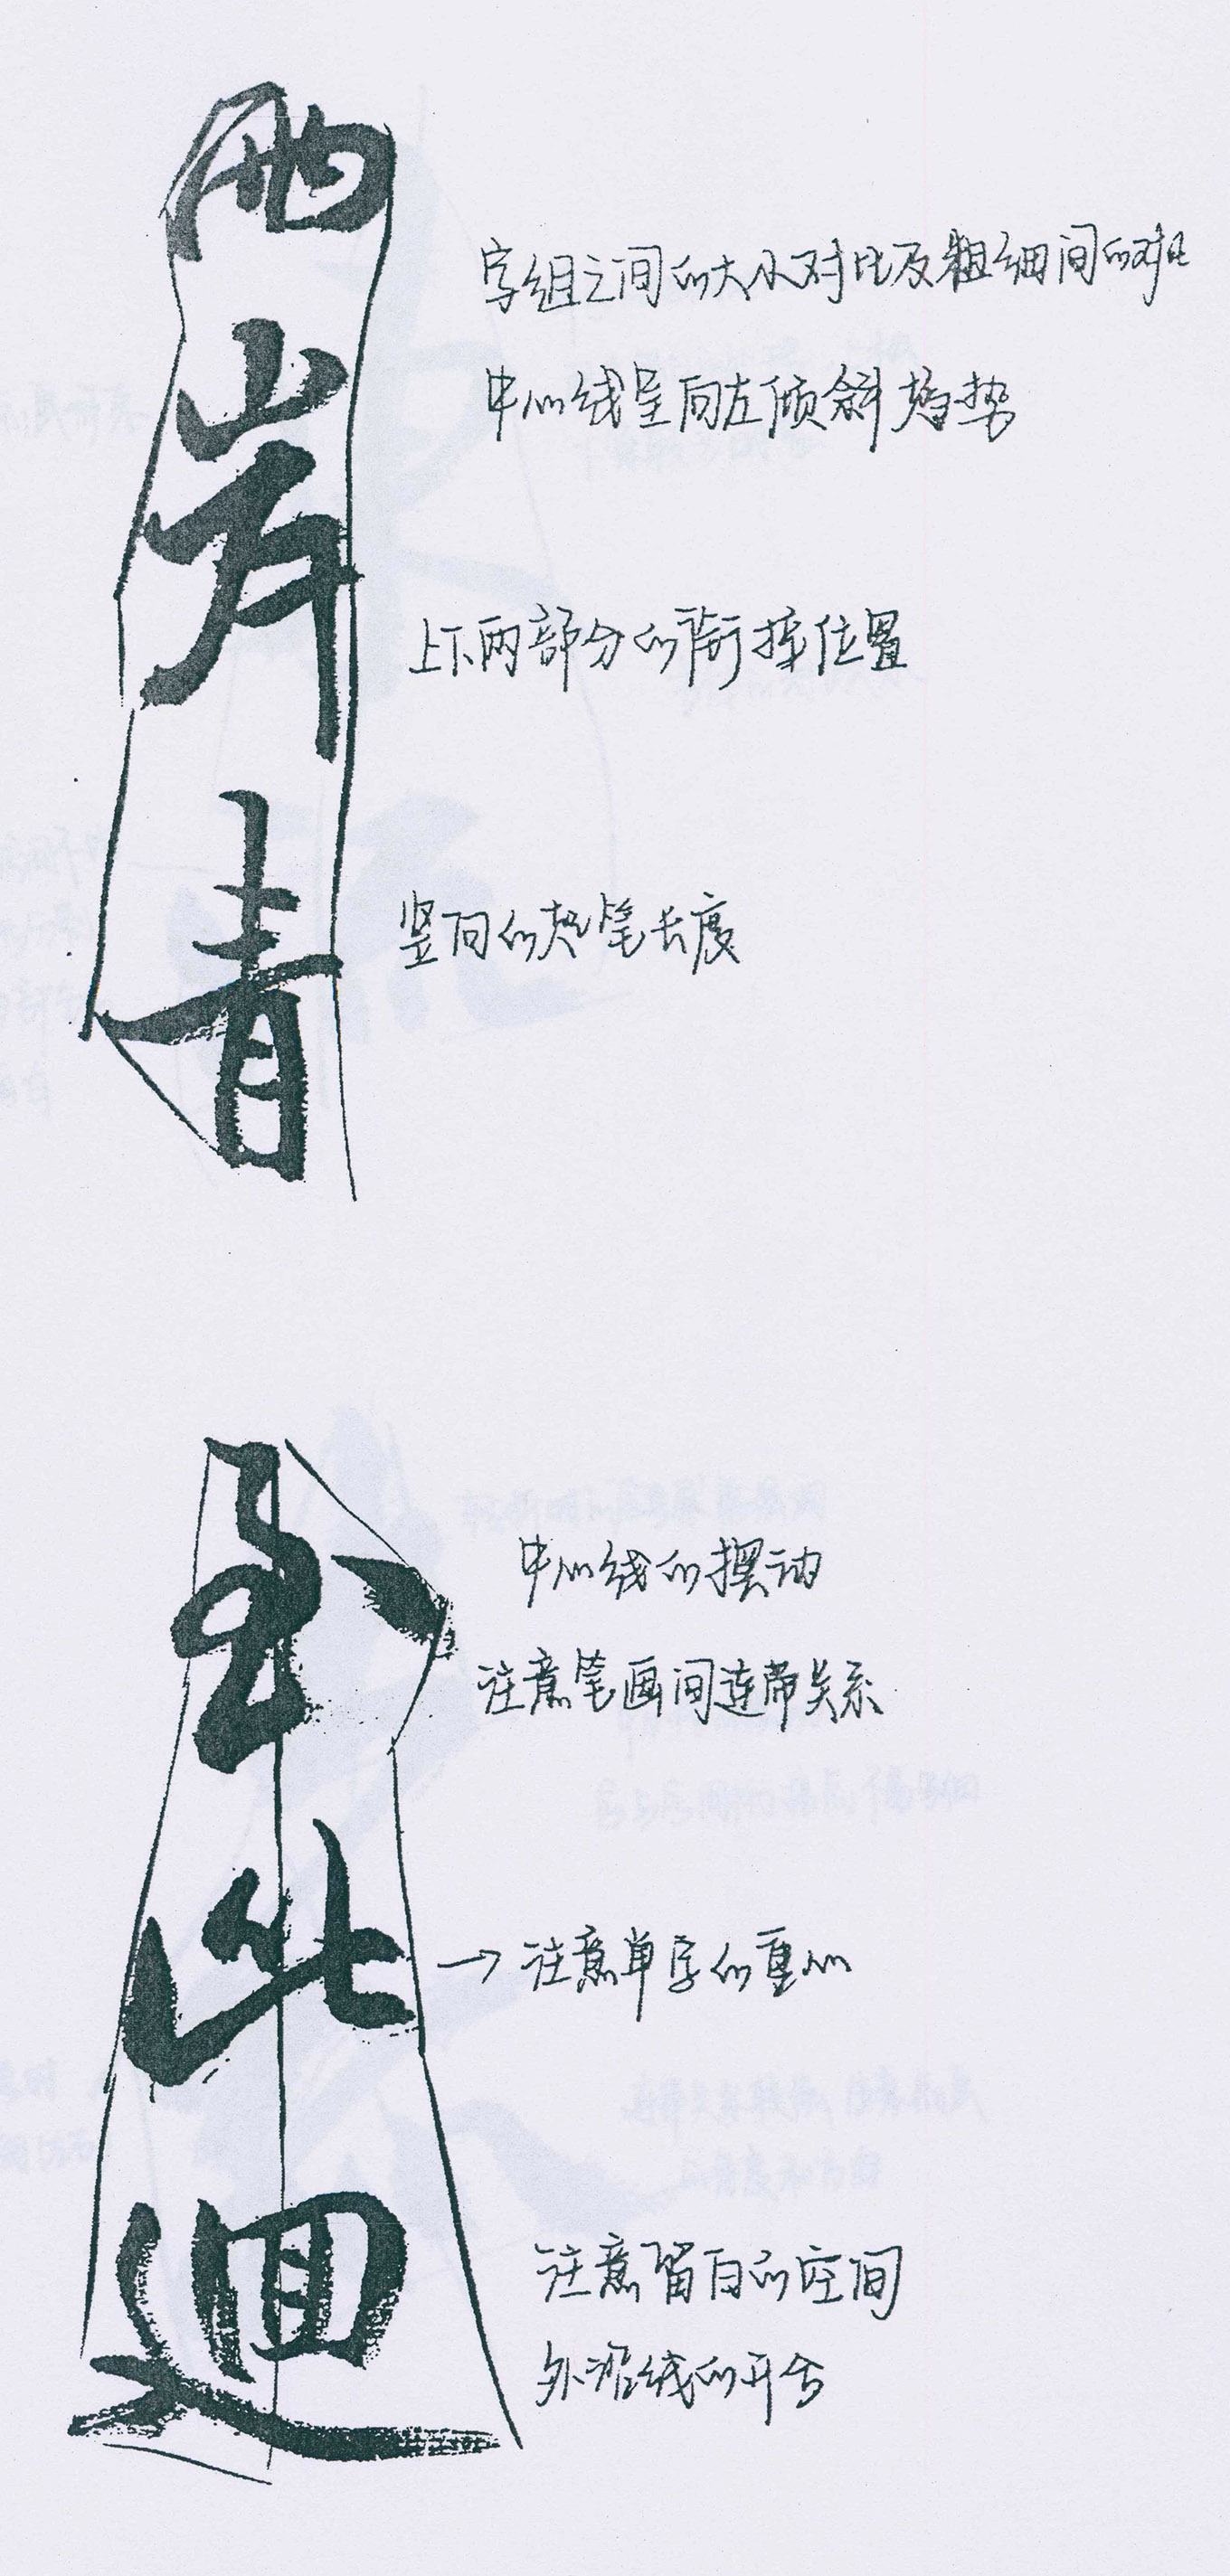 两
岸
青
字组之间的大小对比及粗细间的对比
中心线呈向左倾斜趋势
上下两部分的衔接位置
竖向的起笔长度
至
此
迴
中心线的摆动
注意笔画间连带关系
→注意单字的重心
注意留白的空间
外沿线的开合